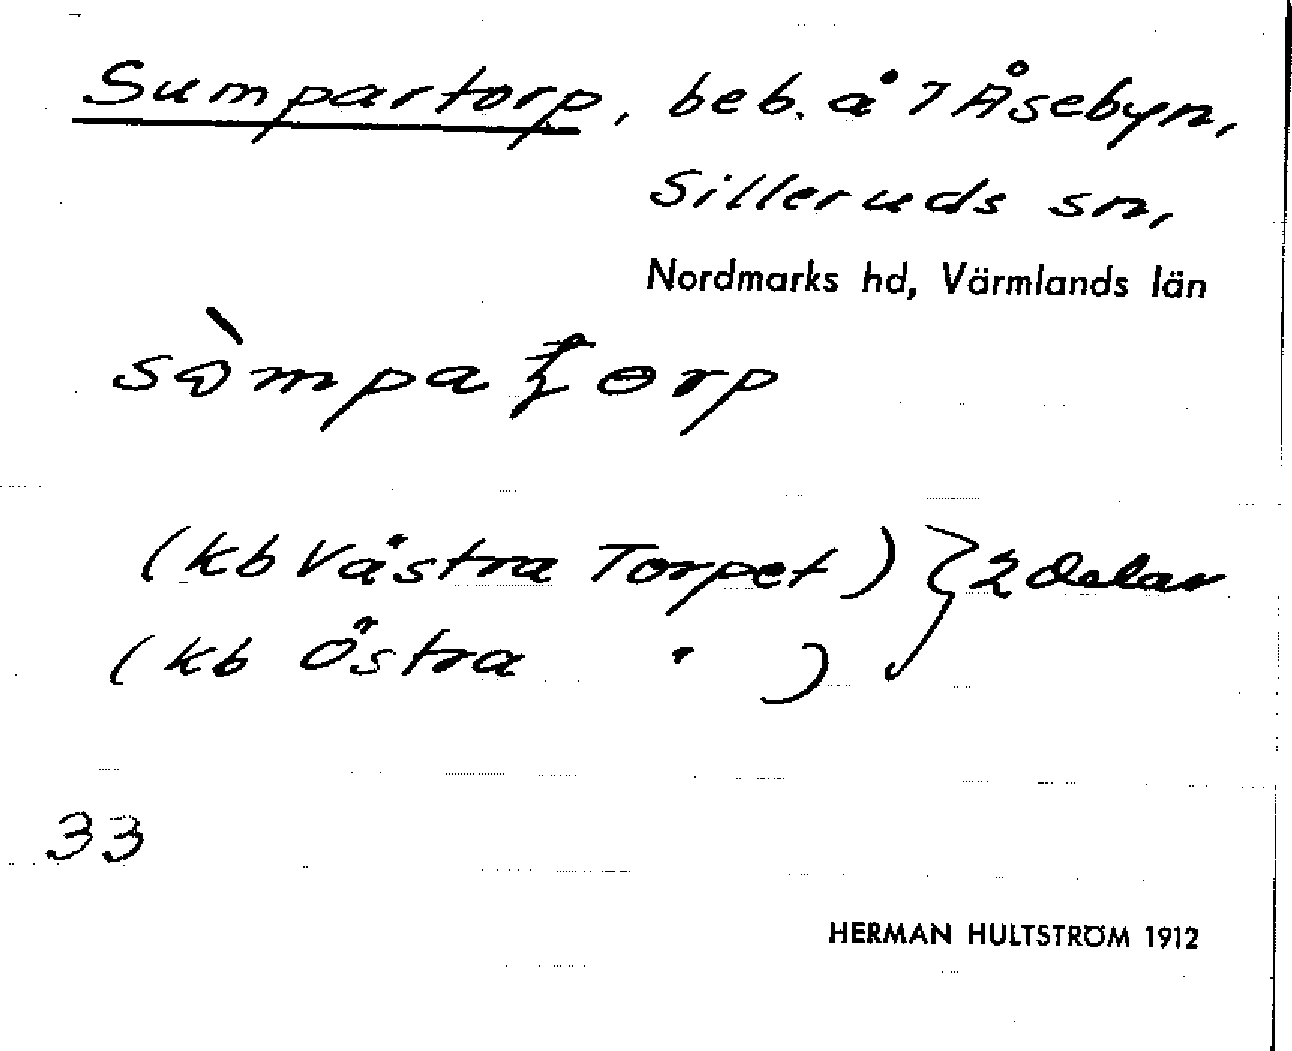 Sumpartorp, beb. å 7 Åsebyn,
Silleruds sn,
Nordmarks hd, Värmlands län
sòmpa torp
(kb Västra Torpet) } 2 delar
(kb Östra " )
33
HERMAN HULTSTRÖM 1912